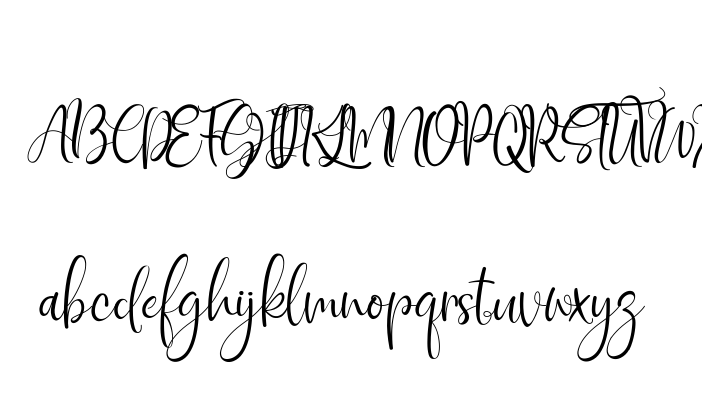 ABCDEFGHIJKLMNOPQRSTUVWX
abcdefghijklmnopqrstuvwxyz